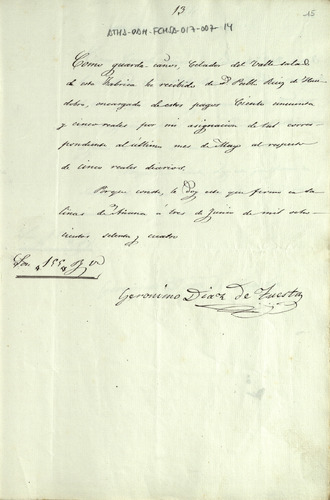 13
15
ATHA-DAH-FCHSA-017-007-14
Como guarda-caños, Celador del Valle salado
de esta Fabrica he recibido de Dn Pablo Ruiz de
encargado de estos pagos Ciento cincuenta
y cinco reales por mi asignacion de tal corres-
pondiente al ultimo mes de Mayo al respecto
de cinco reales diarios.
Porque conste, le doy este que firmo en Sa-
linas de Añana á tres de Junio de mil ocho-
cientos setenta y cuatro
Son 155 Rs vn
Geronimo Diaz de Tuesta